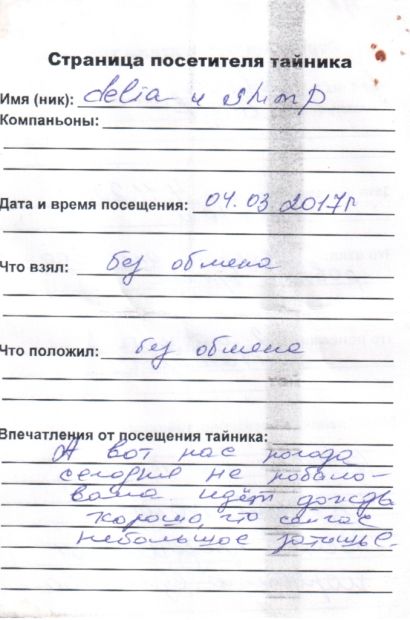 Страница посетителя тайника
Имя (ник): delia и shimp
Компаньоны:
Дата и время посещения: 04.03.2017г
Что взял: без обмена
Что положил: без обмена
Впечатления от посещения тайника:
А вот нас погода
сегодня не побало-
вала. идёт дождь
хорошо, что сейчас
небольшое затишье.